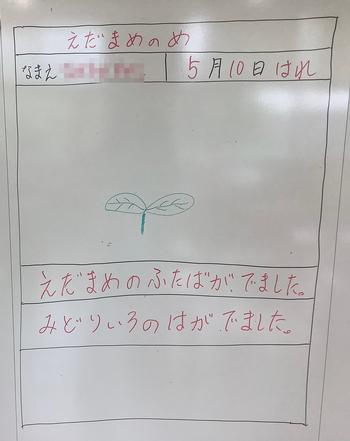 えだまめのめ
なまえ 5月10日 はれ
えだまめのふたばが、でました。
みどりいろのはが、でました。